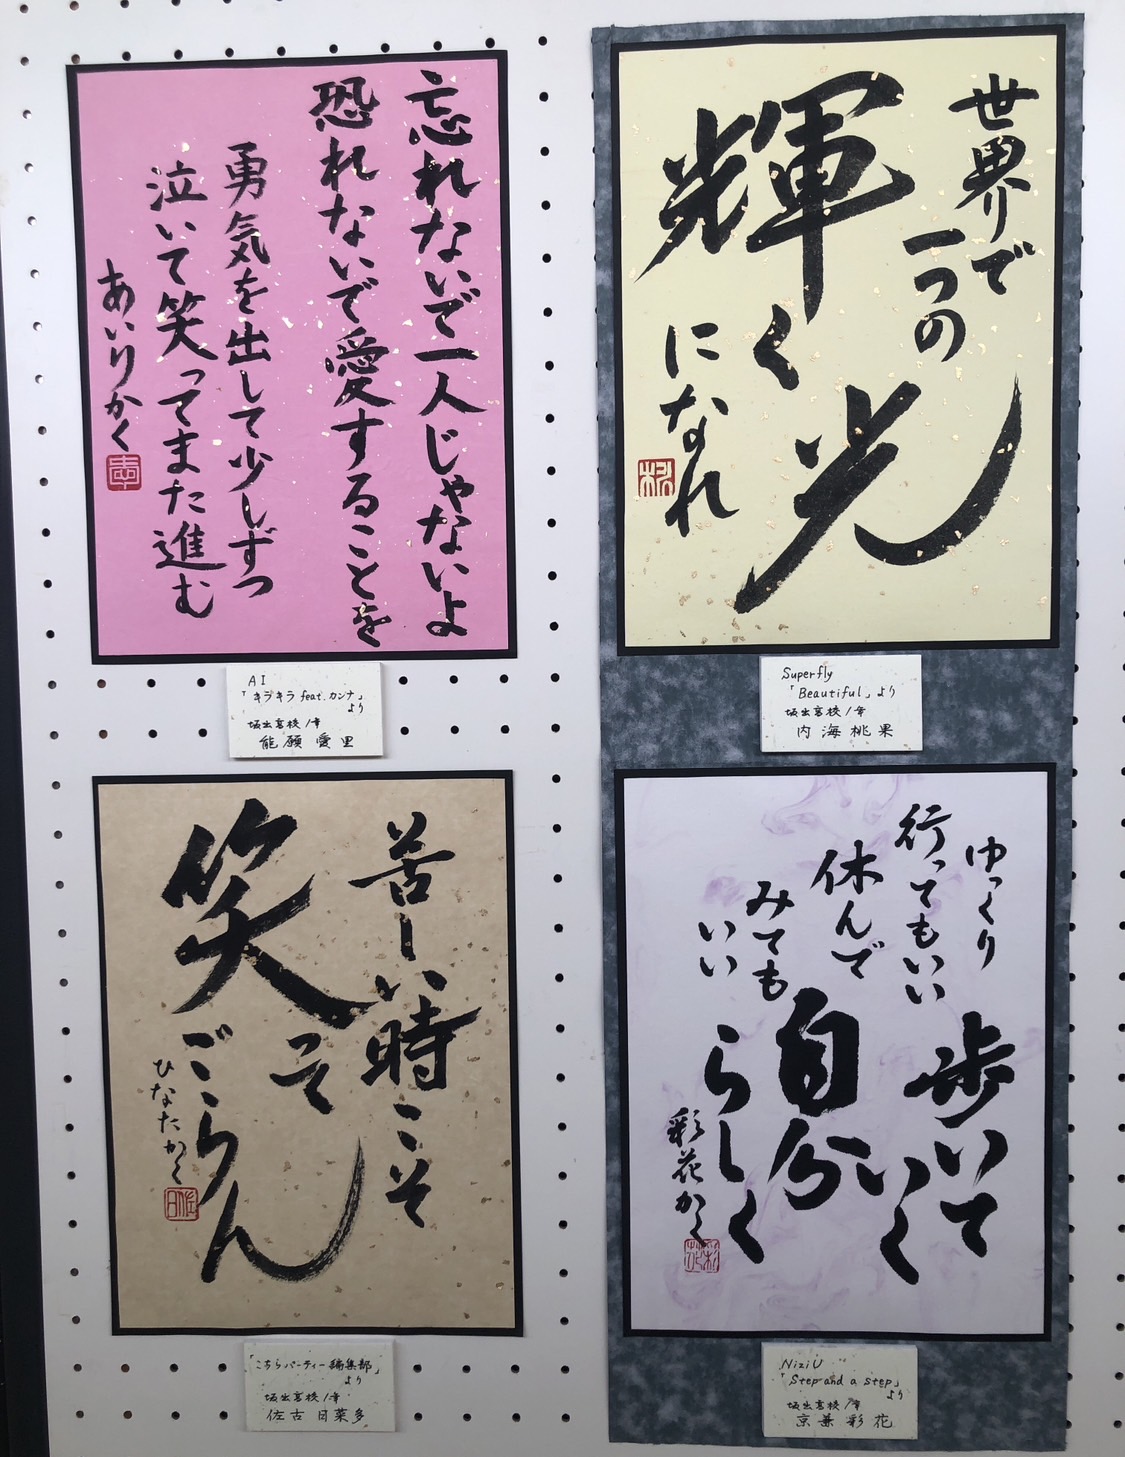 忘れないで一人じゃないよ
恐れないで愛することを
勇気を出して少しずつ
泣いて笑ってまた進む
あいりかく
AI
「キラキラ feat. カンナ」
より
坂出高校1年
能願愛里
世界で
一つの
輝く光
光
になれ
Superfly
「Beautiful」より
坂出高校1年
内海桃果
苦しい時こそ
笑ってごらん
ひなたかく
「こちらパーティー編集部」
より
坂出高校1年
佐古日菜多
ゆっくり
行ってもいい
休んで
みても
いい
歩いて
いく
自分
らしく
彩花かく
彩花
NiziU
「Step and a step」
より
坂出高校1年
京兼彩花